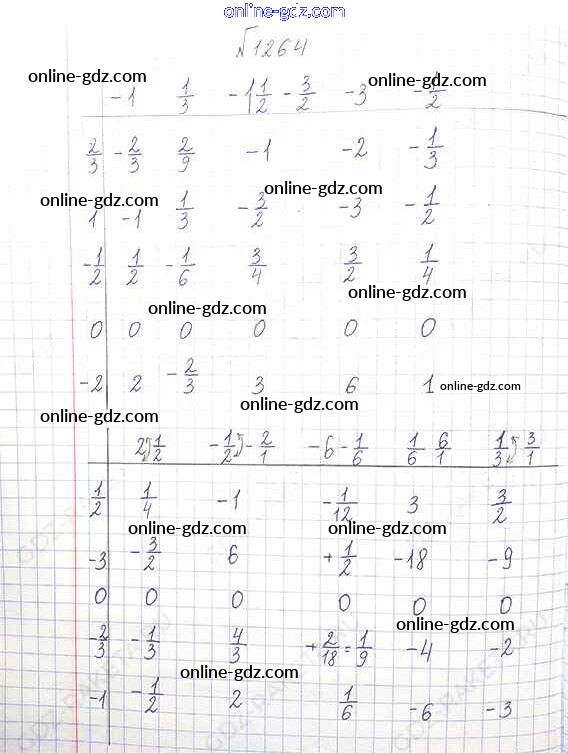 online-gdz.com
№1264
online-gdz.com online-gdz.com
-1 1/3 -1 1/2 -3/2 -3 -1/2
2/3 -2/3 2/9 -1 -2 -1/3
online-gdz.com online-gdz.com
1 -1 1/3 -3/2 -3 -1/2
-1/2 1/2 -1/6 3/4 3/2 1/4
online-gdz.com
online-gdz.com
0 0 0 0 0 0
-2 2 -2/3 3 6 1 online-gdz.com
online-gdz.com online-gdz.com
2 1/2 -1/2 -2/1 -6 -1/6 1/6 6/1 1/3 3/1
1/2 1/4 -1 -1/12 3 3/2
online-gdz.com online-gdz.com
-3 -3/2 6 +1/2 -18 -9
0 0 0 0 0 0
online-gdz.com
-2/3 -1/3 4/3 +2/18=1/9 -4 -2
online-gdz.com
-1 -1/2 2 1/6 -6 -3